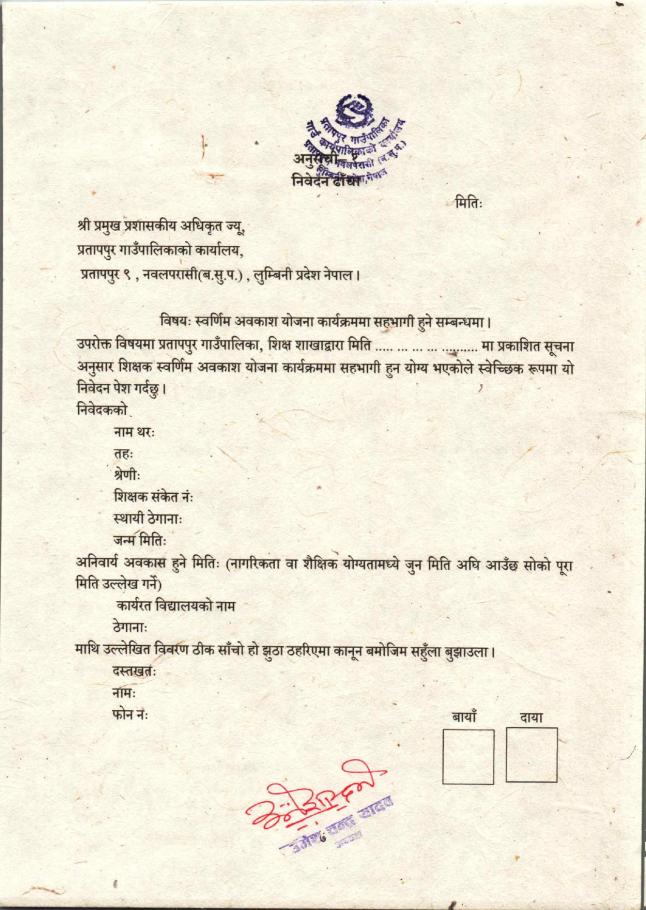 प्रतापपुर गाउँपालिका
गाउँ कार्यपालिकाको कार्यालय
नवलपरासी (ब.सु.प.)
अनुसूची- १
निवेदन ढाँचा
मितिः
श्री प्रमुख प्रशासकीय अधिकृत ज्यू,
प्रतापपुर गाउँपालिकाको कार्यालय,
प्रतापपुर ९ , नवलपरासी(ब.सु.प.) , लुम्बिनी प्रदेश नेपाल ।
विषयः स्वर्णिम अवकाश योजना कार्यक्रममा सहभागी हुने सम्बन्धमा ।
उपरोक्त विषयमा प्रतापपुर गाउँपालिका, शिक्ष शाखाद्वारा मिति ..... ... ... ... .......... मा प्रकाशित सूचना
अनुसार शिक्षक स्वर्णिम अवकाश योजना कार्यक्रममा सहभागी हुन योग्य भएकोले स्वेच्छिक रूपमा यो
निवेदन पेश गर्दछु ।
निवेदकको
नाम थरः
तहः
श्रेणीः
शिक्षक संकेत नंः
स्थायी ठेगानाः
जन्म मितिः
अनिवार्य अवकास हुने मितिः (नागरिकता वा शैक्षिक योग्यतामध्ये जुन मिति अघि आउँछ सोको पूरा
मिति उल्लेख गर्ने)
कार्यरत विद्यालयको नाम
ठेगानाः
माथि उल्लेखित विवरण ठीक साँचो हो झुठा ठहरिएमा कानून बमोजिम सहुँला बुझाउला ।
दस्तखतः
नामः
फोन नंः
बायाँ दाया
उमेश चन्द्र यादव
अध्यक्ष